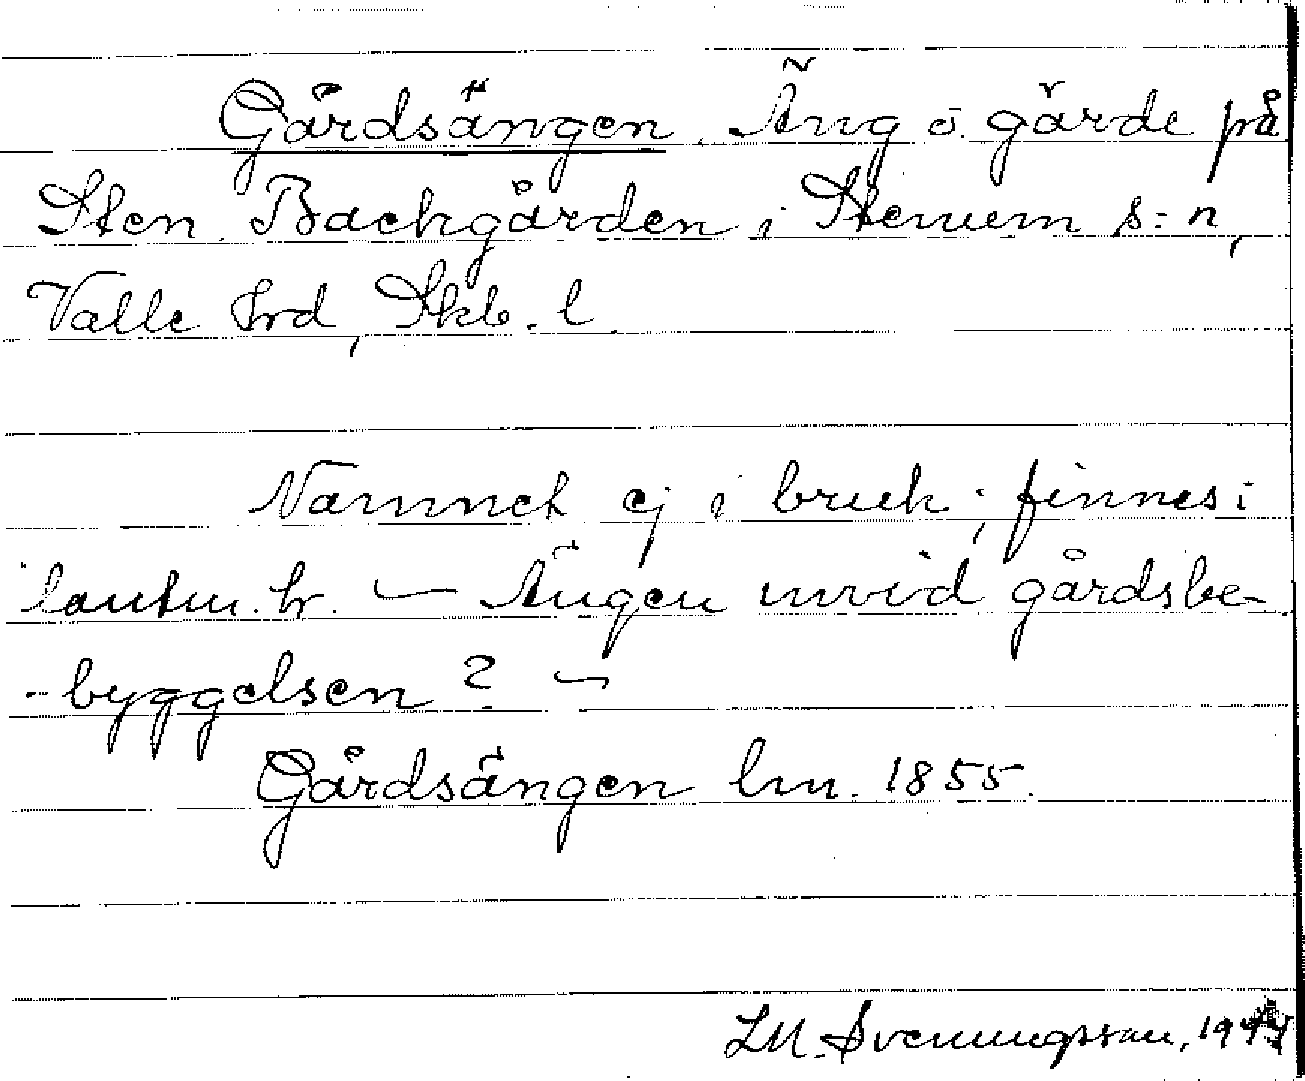 Gårdsängen. Äng o. gärde på
Sten Backgården i Stenum s:n,
Valle hrd, Skb. l.
Namnet ej i bruk; finnes i
lantm. h. — Ängen invid gårdsbe-
-byggelsen? —
Gårdsängen lm. 1855.
LM. Svenungsson,